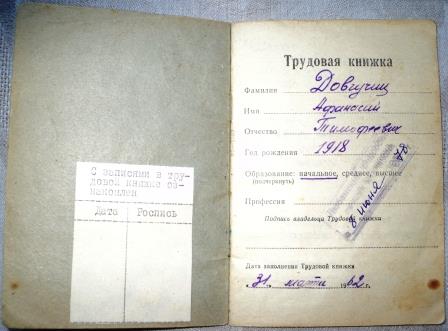 С записями в тру-
довой книжке оз-
накомлен
Дата Роспись
Трудовая книжка
Фамилия Довгучиц
Имя Афанасий
Отчество Тимофеевич
Год рождения 1918
Образование: начальное, среднее, высшее
(подчеркнуть)
Профессия
8 июня
Подпись владельца Трудовой книжки
Дата заполнения Трудовой книжки
„31" марта 1962 г.